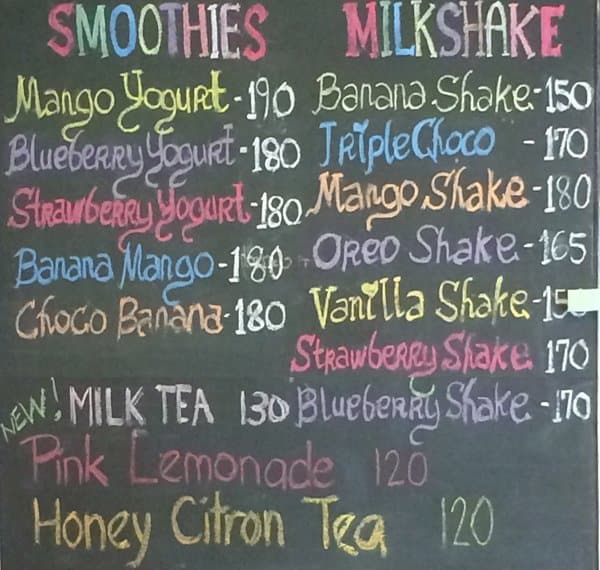 SMOOTHIES
Mango Yogurt - 190
Blueberry Yogurt - 180
Strawberry Yogurt - 180
Banana Mango - 180
Choco Banana - 180
MILKSHAKE
Banana Shake - 150
Triple Choco - 170
Mango Shake - 180
Oreo Shake - 165
Vanilla Shake -
Strawberry Shake 170
Blueberry Shake - 170
NEW! MILK TEA 130
Pink Lemonade 120
Honey Citron Tea 120